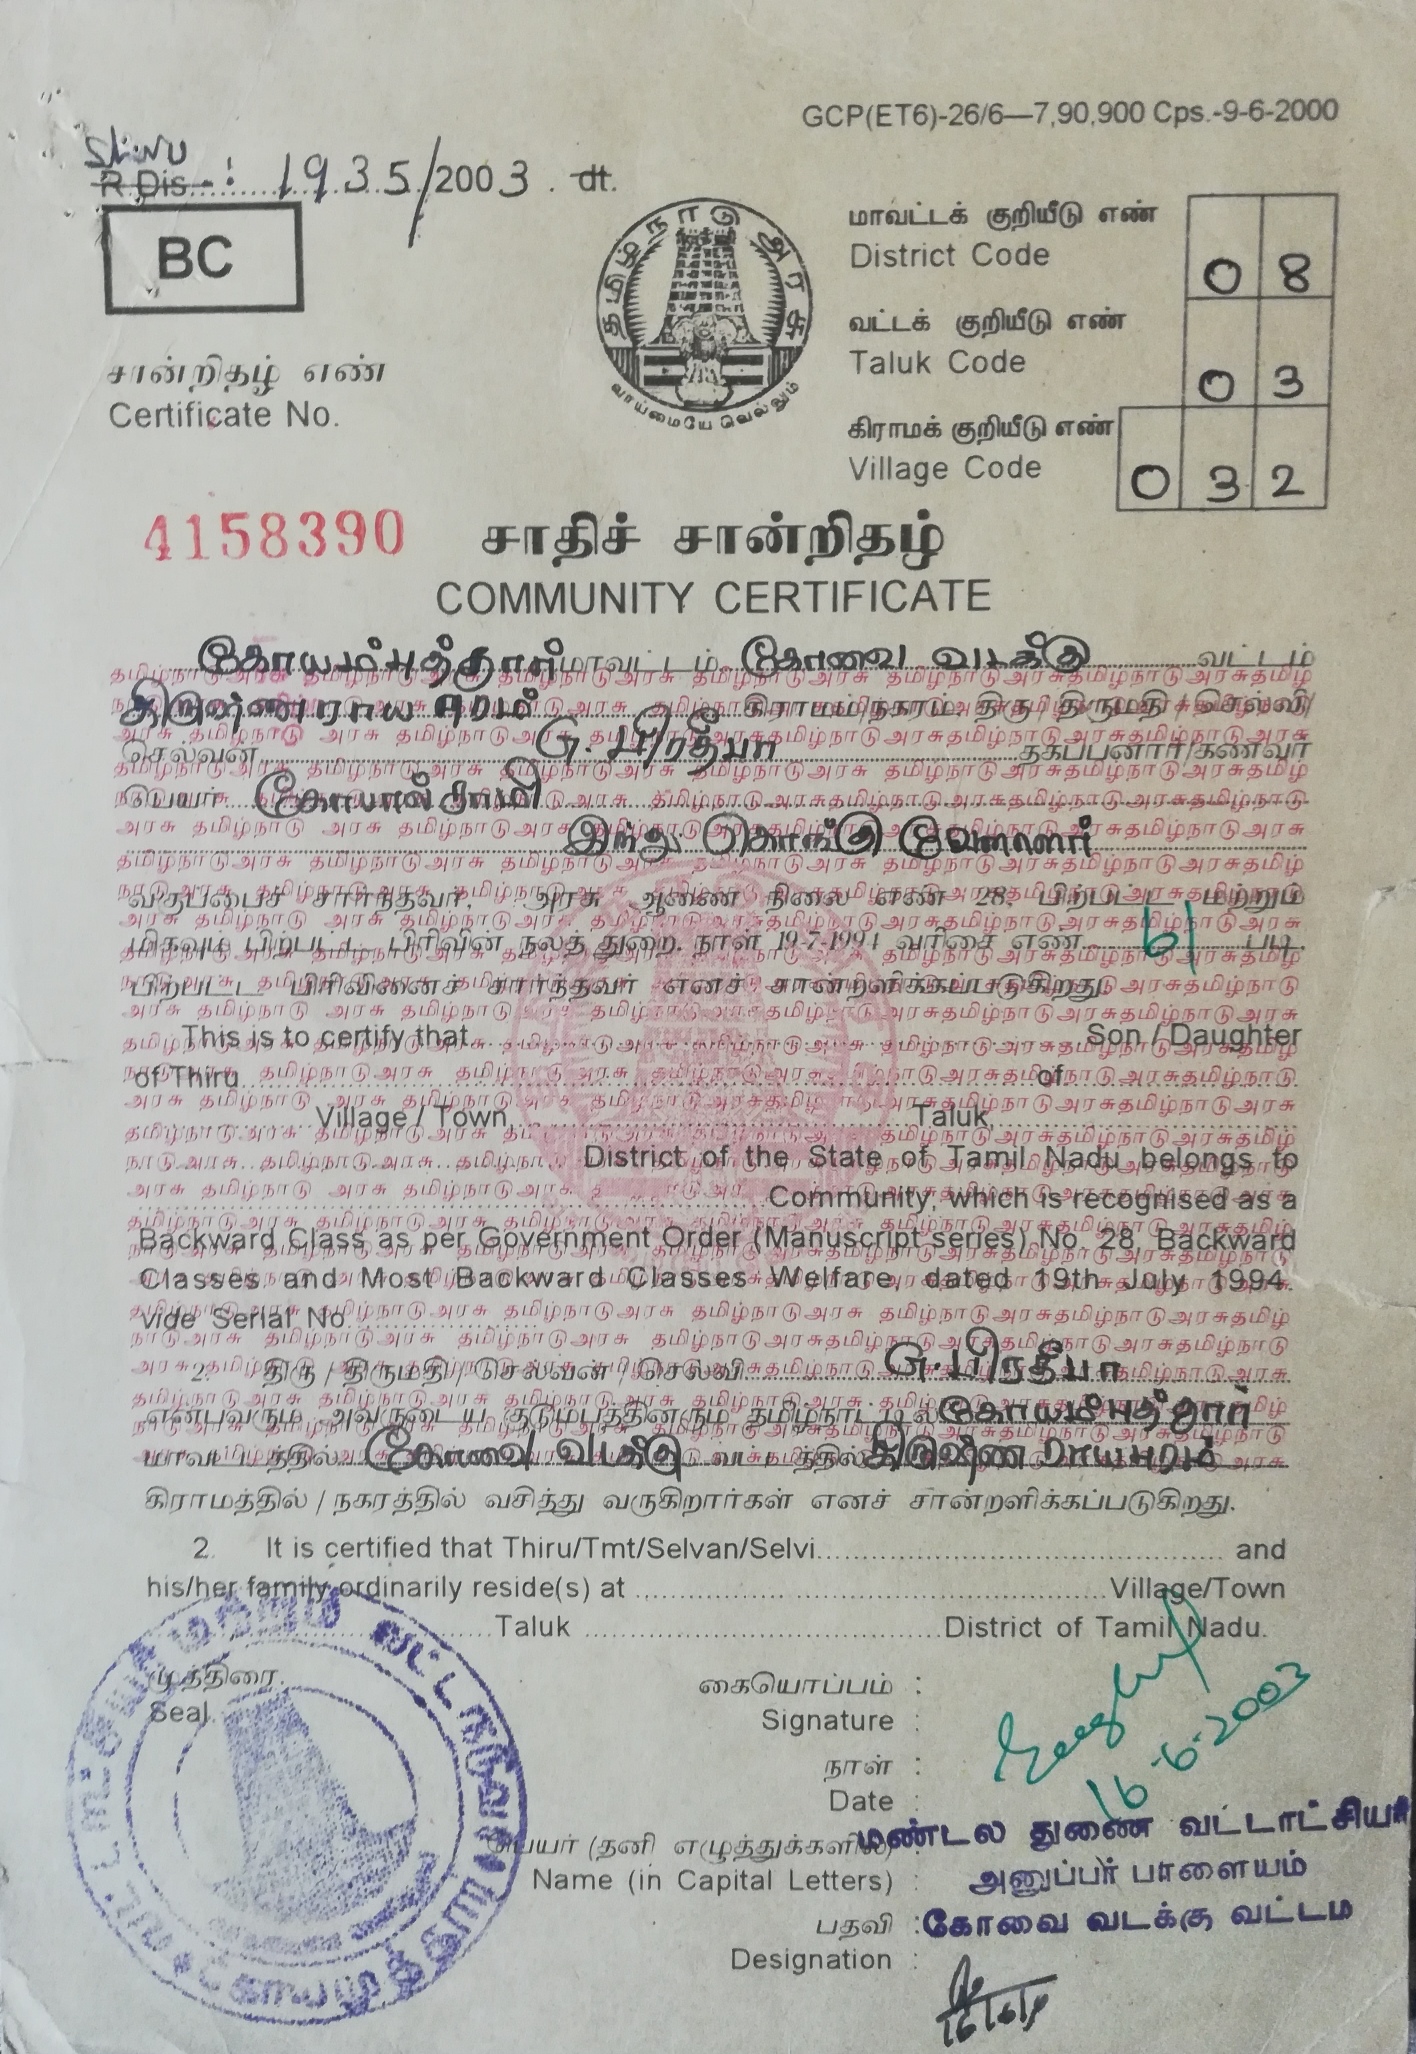 GCP(ET6)-26/6—7,90,900 Cps.-9-6-2000
R Dis : 1935/2003. dt.
BC
தமிழ்நாடு அரசு
வாய்மையே வெல்லும்
மாவட்டக் குறியீடு எண்
District Code 08
வட்டக் குறியீடு எண்
Taluk Code 03
கிராமக் குறியீடு எண்
Village Code 032
சான்றிதழ் எண்
Certificate No.
4158390
சாதிச் சான்றிதழ்
COMMUNITY CERTIFICATE
கோயம்புத்தூர் மாவட்டம், கோவை வடக்கு வட்டம்
கிருஷ்ணராயபுரம் கிராமம்/நகரம், திரு / திருமதி / செல்வி/
செல்வன் G. பிரதீபா தகப்பனார்/கணவர்
பெயர் கோபால்சாமி
இந்து கொங்கு வேளாளர்
வகுப்பைச் சார்ந்தவர், அரசு ஆணை நிலை எண் 28, பிற்பட்ட மற்றும்
மிகவும் பிற்பட்ட பிரிவின் நலத் துறை, நாள் 19-7-1994 வரிசை எண் 61 படி,
பிற்பட்ட பிரிவினைச் சார்ந்தவர் எனச் சான்றளிக்கப்படுகிறது.
This is to certify that Son / Daughter
of Thiru of
Village / Town, Taluk,
District of the State of Tamil Nadu belongs to
Community, which is recognised as a
Backward Class as per Government Order (Manuscript series) No. 28, Backward
Classes and Most Backward Classes Welfare, dated 19th July 1994.
vide Serial No.
2. திரு / திருமதி / செல்வன் / செல்வி G. பிரதீபா
என்பவரும் அவருடைய குடும்பத்தினரும் தமிழ்நாட்டில் கோயம்புத்தூர்
மாவட்டத்தில் கோவை வடக்கு வட்டத்தில் கிருஷ்ணராயபுரம்
கிராமத்தில் / நகரத்தில் வசித்து வருகிறார்கள் எனச் சான்றளிக்கப்படுகிறது.
2. It is certified that Thiru/Tmt/Selvan/Selvi and
his/her family ordinarily reside(s) at Village/Town
Taluk District of Tamil Nadu.
முத்திரை.
Seal.
கையொப்பம் :
Signature :
நாள் :
Date : 16-6-2003
பெயர் (தனி எழுத்துக்களில்) : மண்டல துணை வட்டாட்சியர்
Name (in Capital Letters) : அனுப்பர் பாளையம்
பதவி : கோவை வடக்கு வட்டம
Designation :